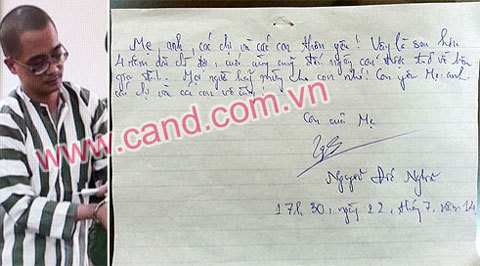 Mẹ, anh, các chị và các con thân yêu! Vậy là sau hơn
4 năm chờ đợi, cuối cùng cũng tới ngày con được trở về bên
gia đình. Mọi người hãy mừng cho con nhé! Con yêu Mẹ, anh
các chị và các con vô cùng!
www.cand.com.vn
Con của Mẹ
Nguyễn Đức Nghĩa
17h 30, ngày 22, tháng 7, năm 14